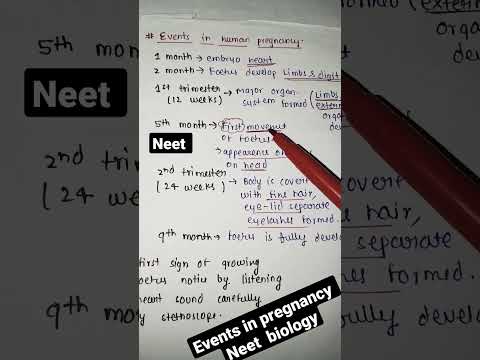 # Events in human pregnancy:
1 month → embryo heart
2 month → Foetus develop Limbs & digit
1st trimester → major organ-
(12 weeks) system formed (Limbs
5th month → First movement
of foetus
→ appearance of
on head
2nd trimester
(24 weeks) → Body is covert
with fine hair,
eye-lid separate
eyelashes formed.
9th month → foetus is fully develo
first sign of growing
foetus notic by listening
heart sound carefully
by stethoscope.
Neet
Neet
Events in pregnancy
Neet biology
5th month
2nd
(24
9th mon
organ
deve
fine hair,
separate
formed.
fully develo